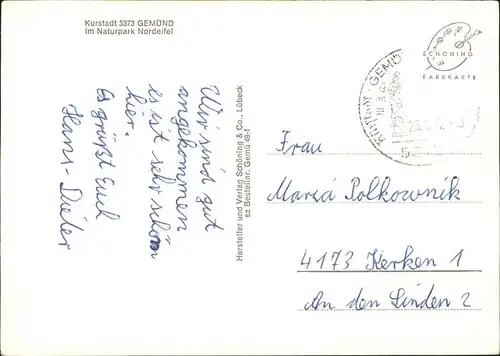 Kurstadt 5373 GEMÜND
im Naturpark Nordeifel
Wir sind gut
angekommen
es ist sehr schön
hier.
Es grüßt Euch
Hans-Dieter
Hersteller und Verlag Schöning & Co., Lübeck
sz Bestellnr. Gemü 49-f
SCHÖNING
FARBKARTE
Kurstadt · GEMÜ
Frau
Maria Polkownik
4173 Kerken 1
An den Linden 2